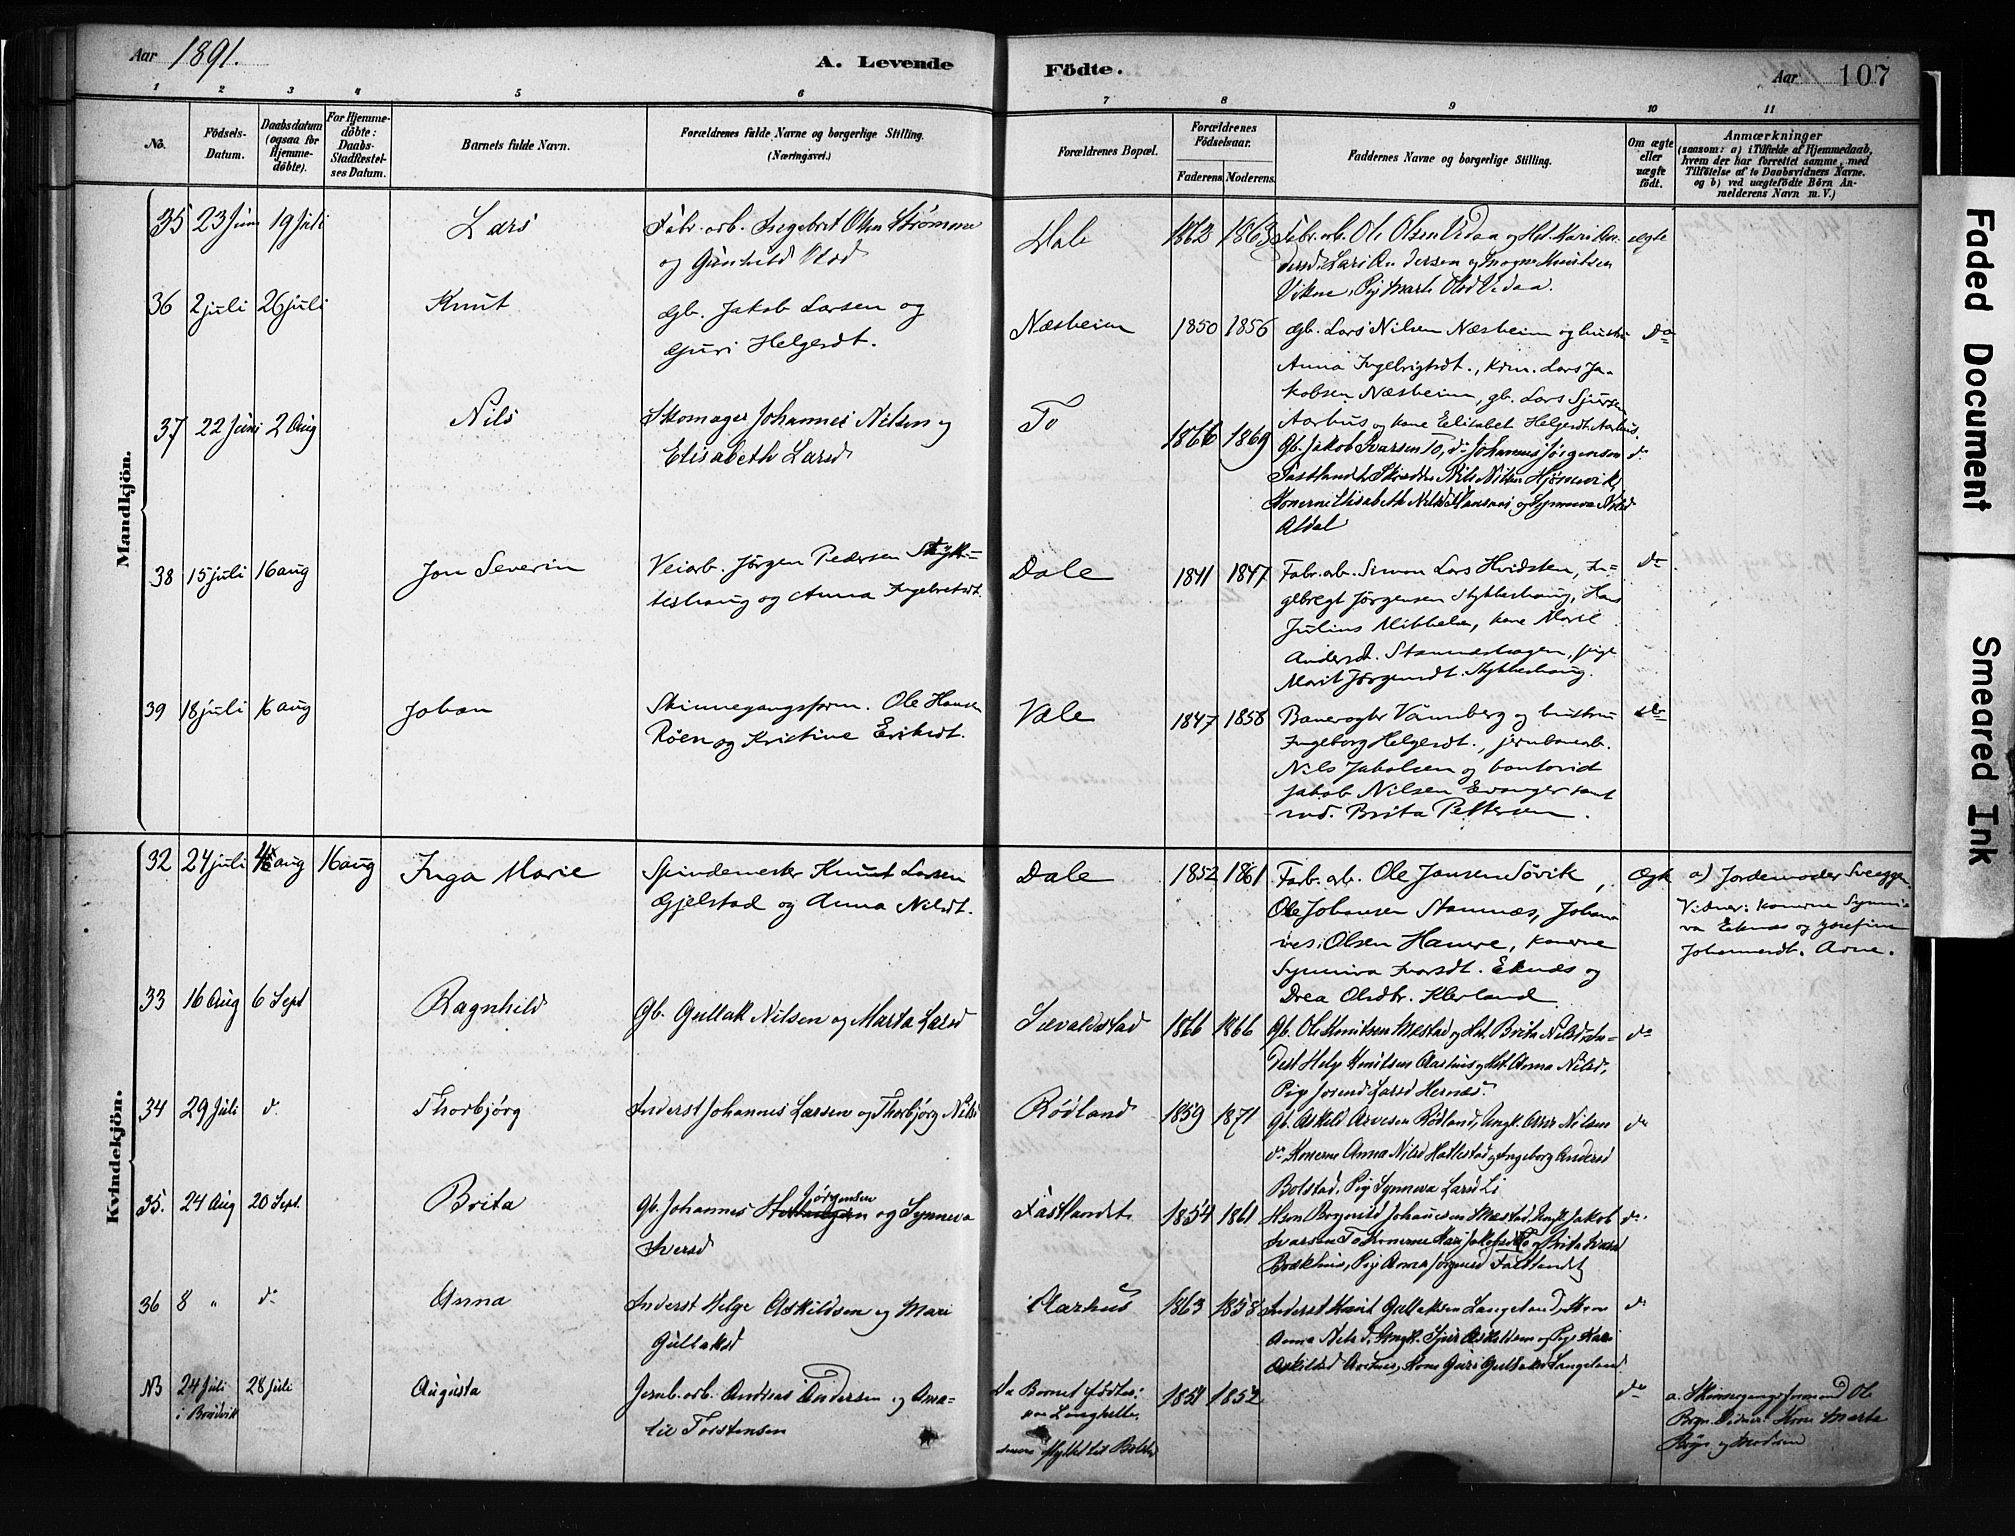 Aar 1891.
A. Levende Födte.
Aar 107
1 2 3 4 5 6 7 8 9 10 11
No.
Födsels-Datum.
Daabsdatum (ogsaa for Hjemme-döbte).
For Hjemme-döbte: Daabs-Stadfæstel-ses Datum.
Barnets fulde Navn.
Forældrenes fulde Navne og borgerlige Stilling.
(Næringsvei.)
Forældrenes Bopæl.
Forældrenes Födselsaar.
Faderens Moderens.
Faddernes Navne og borgerlige Stilling.
Om ægte eller uægte födt.
Anmærkninger
(saasom: a) i Tilfælde af Hjemmedaab,
hvem der har forrettet samme, med
Tilföielse af to Daabsvidners Navne.
og b) ved uægtefödte Börn An-
melderens Navn m. V.)
Mandkjön.
35 23 Juni 19 Juli Lars Fabr. arb. Ingebret Olsen Strømme
og Gunhild Olsd
Dale 1862 1863 Fabr. arb. Ole Olsen Vedaa og Hst. Mari An-
dersd,
Vikne, Pig Marte Olsd Vedaa.
ægte
36 2 juli 26 juli Knut gb. Jakob Larsen og
Guri Helgesdt.
Næsheim 1850 1856 gb. Lars Nilsen Næsheim og hustru
Anna Ingebrigtsdt., Lars Ja-
kobsen Næsheim, gb. Lars Sjursen
Aarhus og kone Elisabet Helgesdt. Aarhus.
Do
37 22 Juni 2 Aug Nils Skomager Johannes Nilsen og
Elisabeth Larsd
To 1866 1869 Gb. Jakob Ivarsen To, do Johannes Jørgensen
Fastlandet, Skrædder Nils Nilsen Hjørnevik,
Konerne Elisabeth Nilsd og Synneva Nilsd
Aldal
do
38 15 juli 16 aug Jon Severin Veiarb. Jørgen Pedersen Styk-
keshaug og Anna Ingebretsdt.
Dale 1841 1847 Fabr. arb. Simon Lars Hvidsten, In-
gebregt Jørgensen Stykkeshaug, Hans
Julius Mikkelsen, kone Marie
Andersdt. Stamneshagen, pige
Marit Jørgensdt. Stykkeshaug.
do
39 18 juli 16 aug Johan Skinnegangsform. Ole Hansen
Røen og Kristine Eriksdt.
Dale 1847 1858 Banevogter Vannberg og hustru
Ingeborg Helgesdt., jernbanearb.
Nils Jakobsen og
Jakob Nilsen Evanger samt
Brita Pettersen.
do
Kvindekjön.
32 24 juli aug 16 aug Inga Marie Spindemester Knut Larsen
Gjelstad og Anna Nilsdt.
Dale 1852 1861 Fabr. arb. Ole Jansen Søvik,
Ole Johansen Stamnæs, Johan-
nes Olsen Hamre, konerne
Synniva Ivarsdt. Eknæs og
Drea Olsdtr. Kleiland
Ægte a) Jordemoder
Vidner: konerne Synni-
va Eknæs og Josefine
Johannesdt. Arne.
33 16 Aug 6 Sept Ragnhild Gb. Gullak Nilsen og Marta Larsd
Sævaldstad 1866 1866 Gb. Ole Knutsen Mestad og Hst. Brita Nilsd, In-
derst Helge Knutsen Aarhus og Hst. Anna Nilsd,
Pig Jorend Larsd Hernæs.
do
34 29 Juli do Thorbjørg Inderst Johannes Larsen og Thorbjørg Nilsd
Rødland 1859 1871 Gb. Askild Arnesen Rødland, Ungk. Arne Nilsen
do Konerne Anna Nilsd Hattestad og Ingeborg Andersd
Bolstad, Pig Synneva Larsd Li
do
35. 24 Aug 20 Sept. Brita Gb. Johannes Jørgensen og Synneva
Iversd
Fastlandet 1854 1861 Brynild Johannesen Mæstad, Ungk. Jakob
Ivarsen To, Konerne Mari Jakobsd To og Brita Ivarsd
Brækhus, Pig Anna Jørgensd Fastlandet
do
36 8 " do Anna Inderst Helge Askildsen og Mari
Gullaksd
Aarhus 1863 1858 Inderst Gullaksen Langeland, Kone
Anna Nilsd, Ungk. Sjur Askildsen og Pige Kari
Askildsd Aarhus, Kone Guri Gullaksd Langeland
do
NB 24 Juli i Bordvik 28 Juli Augusta Jernb. arb. Andreas Andersen og Ama-
lie Torstensen
Da Barnet fødtes:
paa Langhelle,
senere flyttet til Bolstad
1851 1852
do a. Skinnegangsformand Ole
Vidner: Kone Marta